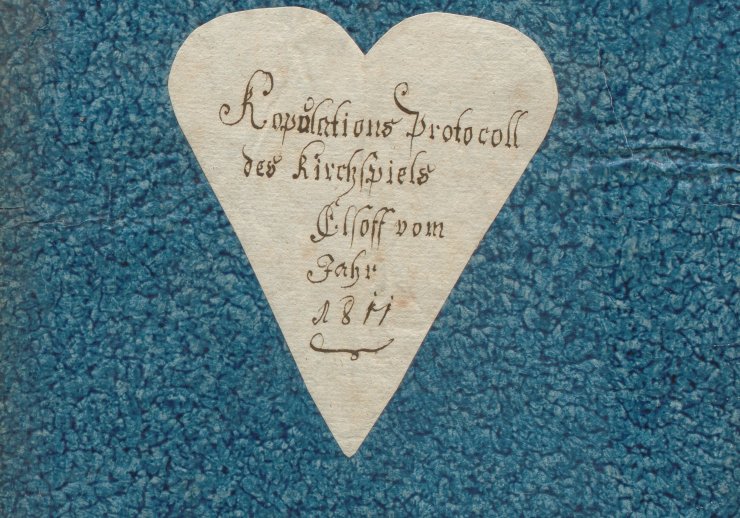 Kopulations Protocoll
des Kirchspiels
Elsoff vom
Jahr
1811